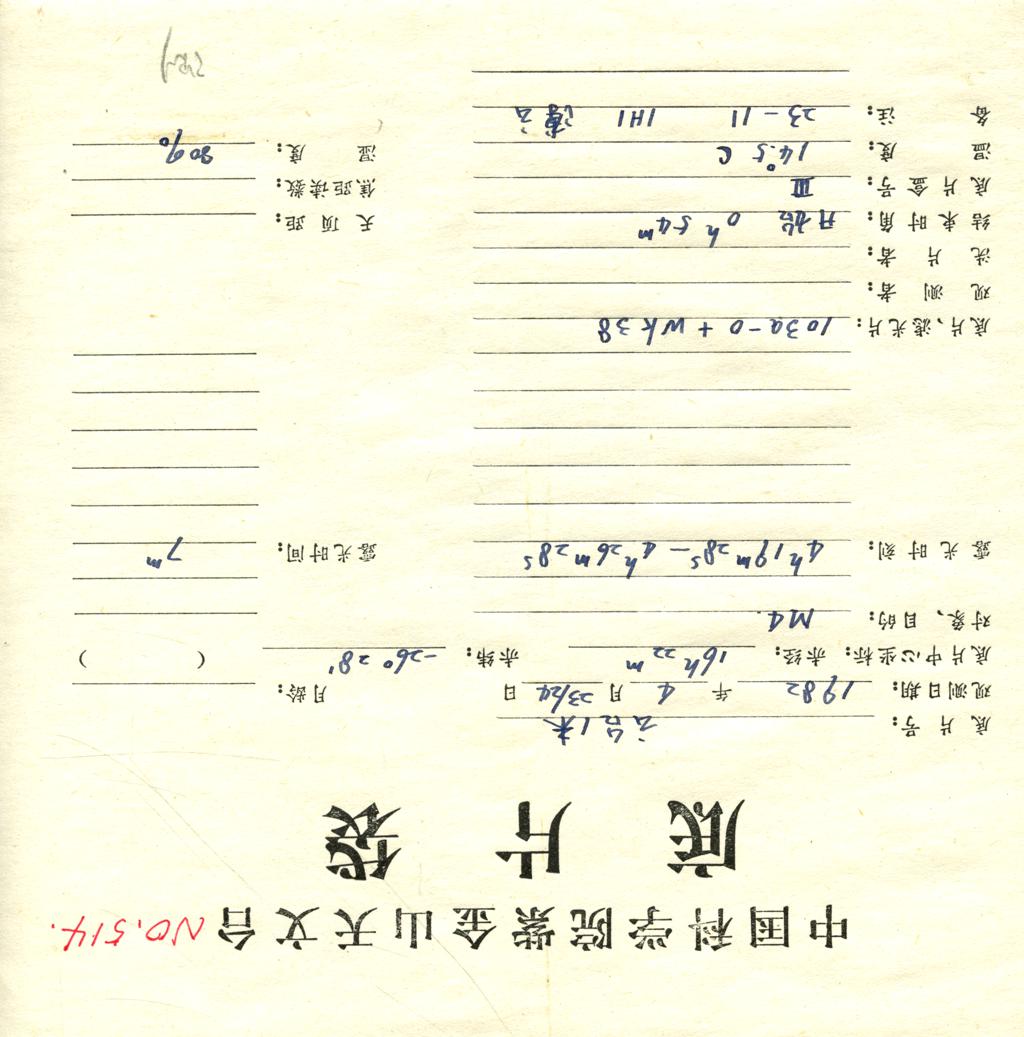 中国科学院紫金山天文台 NO.514.
底片袋
底片号: 云台1米
观测日期: 1982 年 4 月 23/24 日 月龄:
底片中心坐标: 赤经: 16h 22m 赤纬: -26° 28' ( )
对象、目的: M4
露光时刻: 4h19m28s — 4h26m28s 露光时间: 7m
底片、滤光片: 103a-O + WK38
观测者:
洗片者:
结束时角: 开始 0h 54m 天顶距:
底片盒号: III 焦距读数:
温度: 14.°5 C 湿度: 80%
备注: 23-11 1H1 薄云